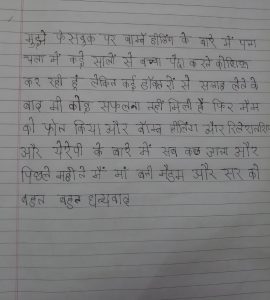 मुझे फेसबुक पर बाम्बे हीलिंग के बारे में पता
चला मैं कई सालों से बच्चा पैदा करने कोशिश
कर रही हूँ लेकिन कई डॉक्टरों से सलाह लेने के
बाद भी कोई सफलता नहीं मिली है फिर मैम
को फोन किया और बॉम्बे हीलिंग और
और थेरेपी के बारे में सब कुछ जाना और
पिछले महीने मैं मां बनी मैडम और सर को
बहुत बहुत धन्यवाद